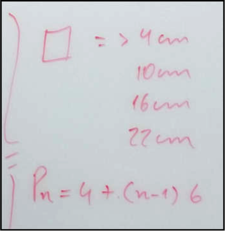 □ => 4cm
10cm
16cm
22cm
Pn = 4 + (n-1) 6